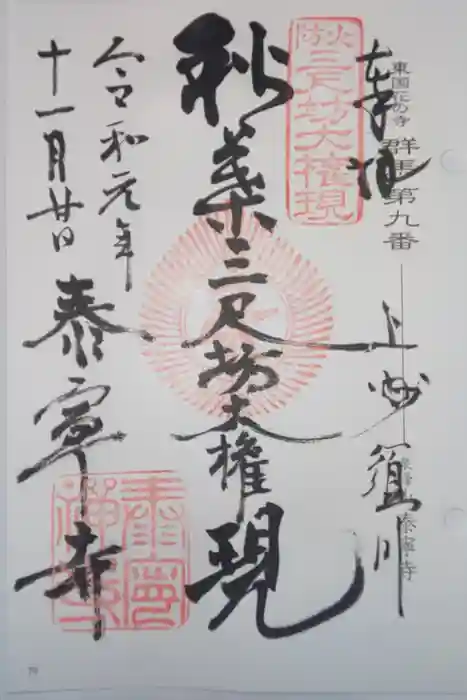 東国花の寺 群馬第九番
泰寧寺
奉拝
上州須川
火防
三尺坊大権現
秋葉三尺坊大権現
令和元年
十一月廿日
泰寧寺